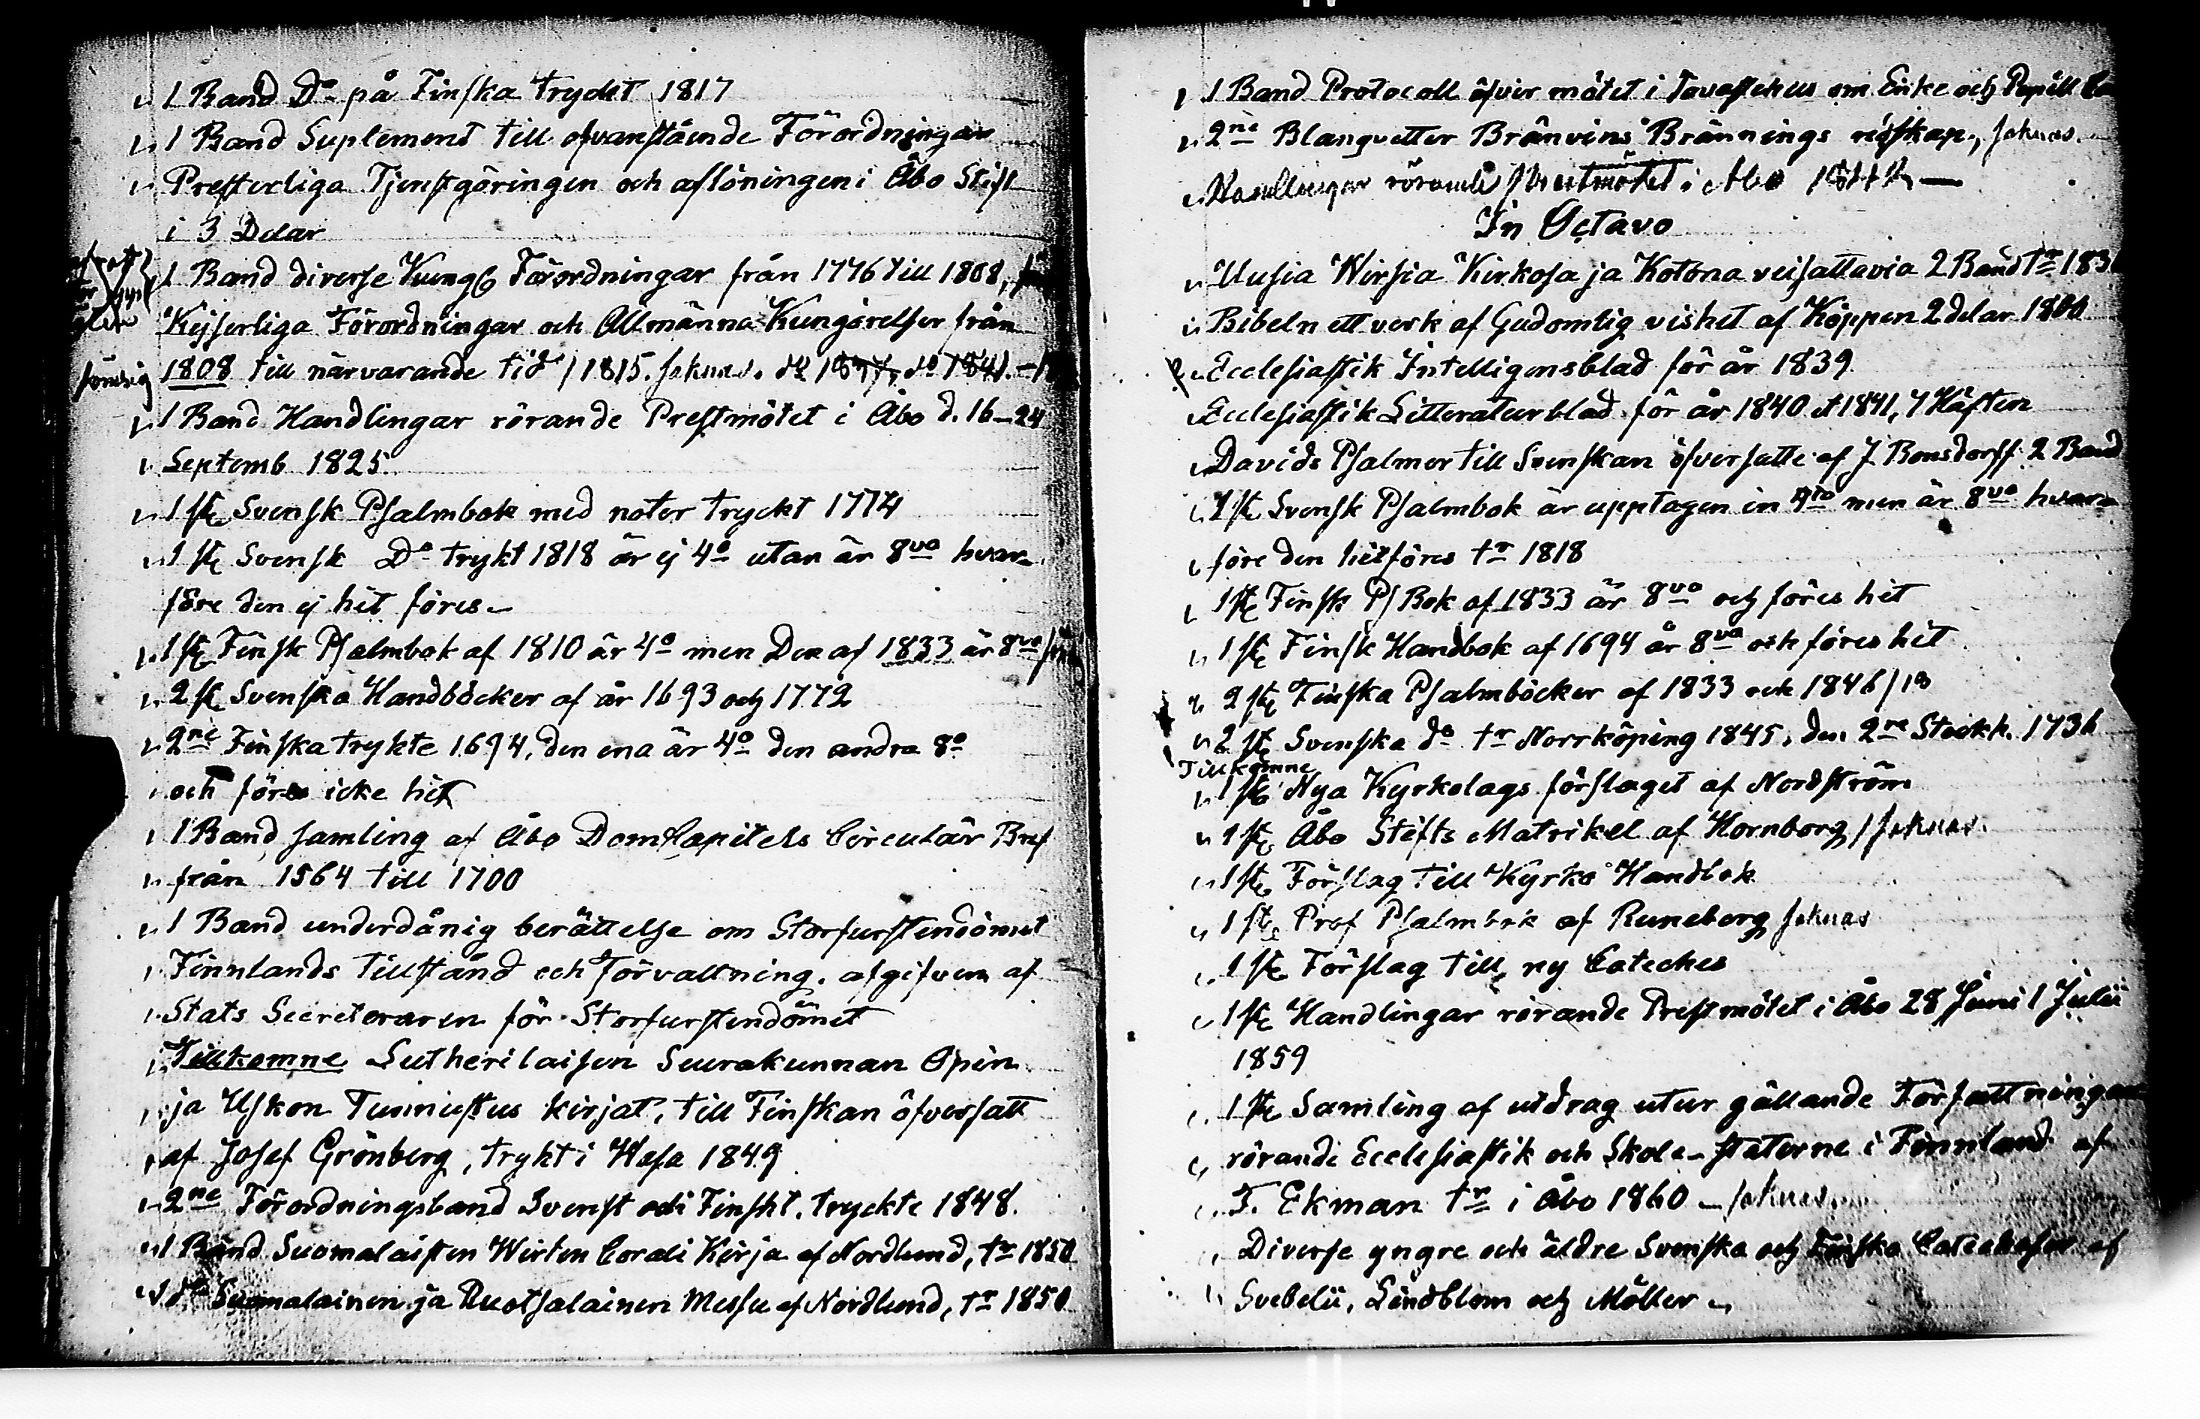 1 Band Do på Finska tryckt 1817
1 Band Suplement till ofvanstående Förordningar
Presterliga Tjenstgöringen och aflöningen i Åbo Stift
i 3 Delar
1 Band diverse Kungl Förordningar från 1776 till 1808,
Kejserliga Förordningar och Allmänna Kungörelser från
1808 till närvarande tid / 1815. saknas. do
1 Band Handlingar rörande Prestmötet i Åbo d. 16-24
Septemb 1825
1 st Svensk Psalmbok med noter tryckt 1774
1 st Svensk Do trykt 1818 är ej 4o utan är 8vo hvar-
före den ej hit föres
1 st Finsk Psalmbok af 1810 är 4o men Den af 1833 är 8vo
2 st Svenska Handböcker af år 1693 och 1772
2ne Finska trykte 1694, den ena är 4o den andra 8o
och föres icke hit
1 Band samling af Åbo DomCapitels Circulär Bref
från 1564 till 1700
1 Band underdånig berättelse om Storfurstendömet
Finnlands Tillstånd och Förvaltning. afgifven af
Stats Secreteraren för Storfurstendömet
Tillkomne Lutherilaisen Seurakunnan Opin
ja Uskon Tunnustus kirjat, till Finskan öfversatt
af Josef Grönberg, trykt i Wasa 1849
2ne Förordningsband Svenst och Finskt. tryckte 1848.
1 Band Suomalaisten Wirten Corali Kirja af Nordlund, tr 1850
1 do Suomalainen ja Ruotsalainen Messu af Nordlund, tr 1850
1 Band Protocoll öfver mötet i Tavastehus om Enke och Pupill
2ne Blanqvetter Bränvins Brännings redskap, saknas.
Handlingar rörande Prestmötet i Åbo
In Octavo
Uusia Wirsia Kirkosa ja Kotona veisattavia 2 Band tr
Bibeln ett verk af Gudomlig vishet af Köppen 2 delar 1800
Ecclesiastik Intelligensblad för år 1839
Ecclesiastik Litteraturblad för år 1840 et 1841, 7 Häften
Davids Psalmer till Svenskan öfversatte af J Bonsdorff 2 Band
1 st Svensk Psalmbok är upptagen in 4to men är 8vo hvar-
före den hitföres tr 1818
1 st Finsk Ps Bok af 1833 är 8vo och föres hit
1 st Finsk Handbok af 1694 är 8vo och föres hit
2 st Finska Psalmböcker af 1833 och 1846
2 st Svenska do tr Norrköping 1845. den 2ne Stockh. 1736
Tillkomne
1 st Nya Kyrkolags förslaget af Nordström
1 st Åbo Stifts Matrikel af Hornborg / saknas.
1 st Förslag till Kyrko Handbok
1 st Prof Psalmbok af Runeberg saknas
1 st Förslag till ny Cateches
1 st Handlingar rörande Prestmötet i Åbo 28 Juni 1 Julii
1859
1 st Samling af utdrag utur gällande Författningar
rörande Ecclesiastik och Skole-staterne i Finnland af
F. Ekman tr i Åbo 1860 - saknas
Diverse yngre och äldre Svenska och Finska Catecheser af
Svebelii, Lindblom och Möller